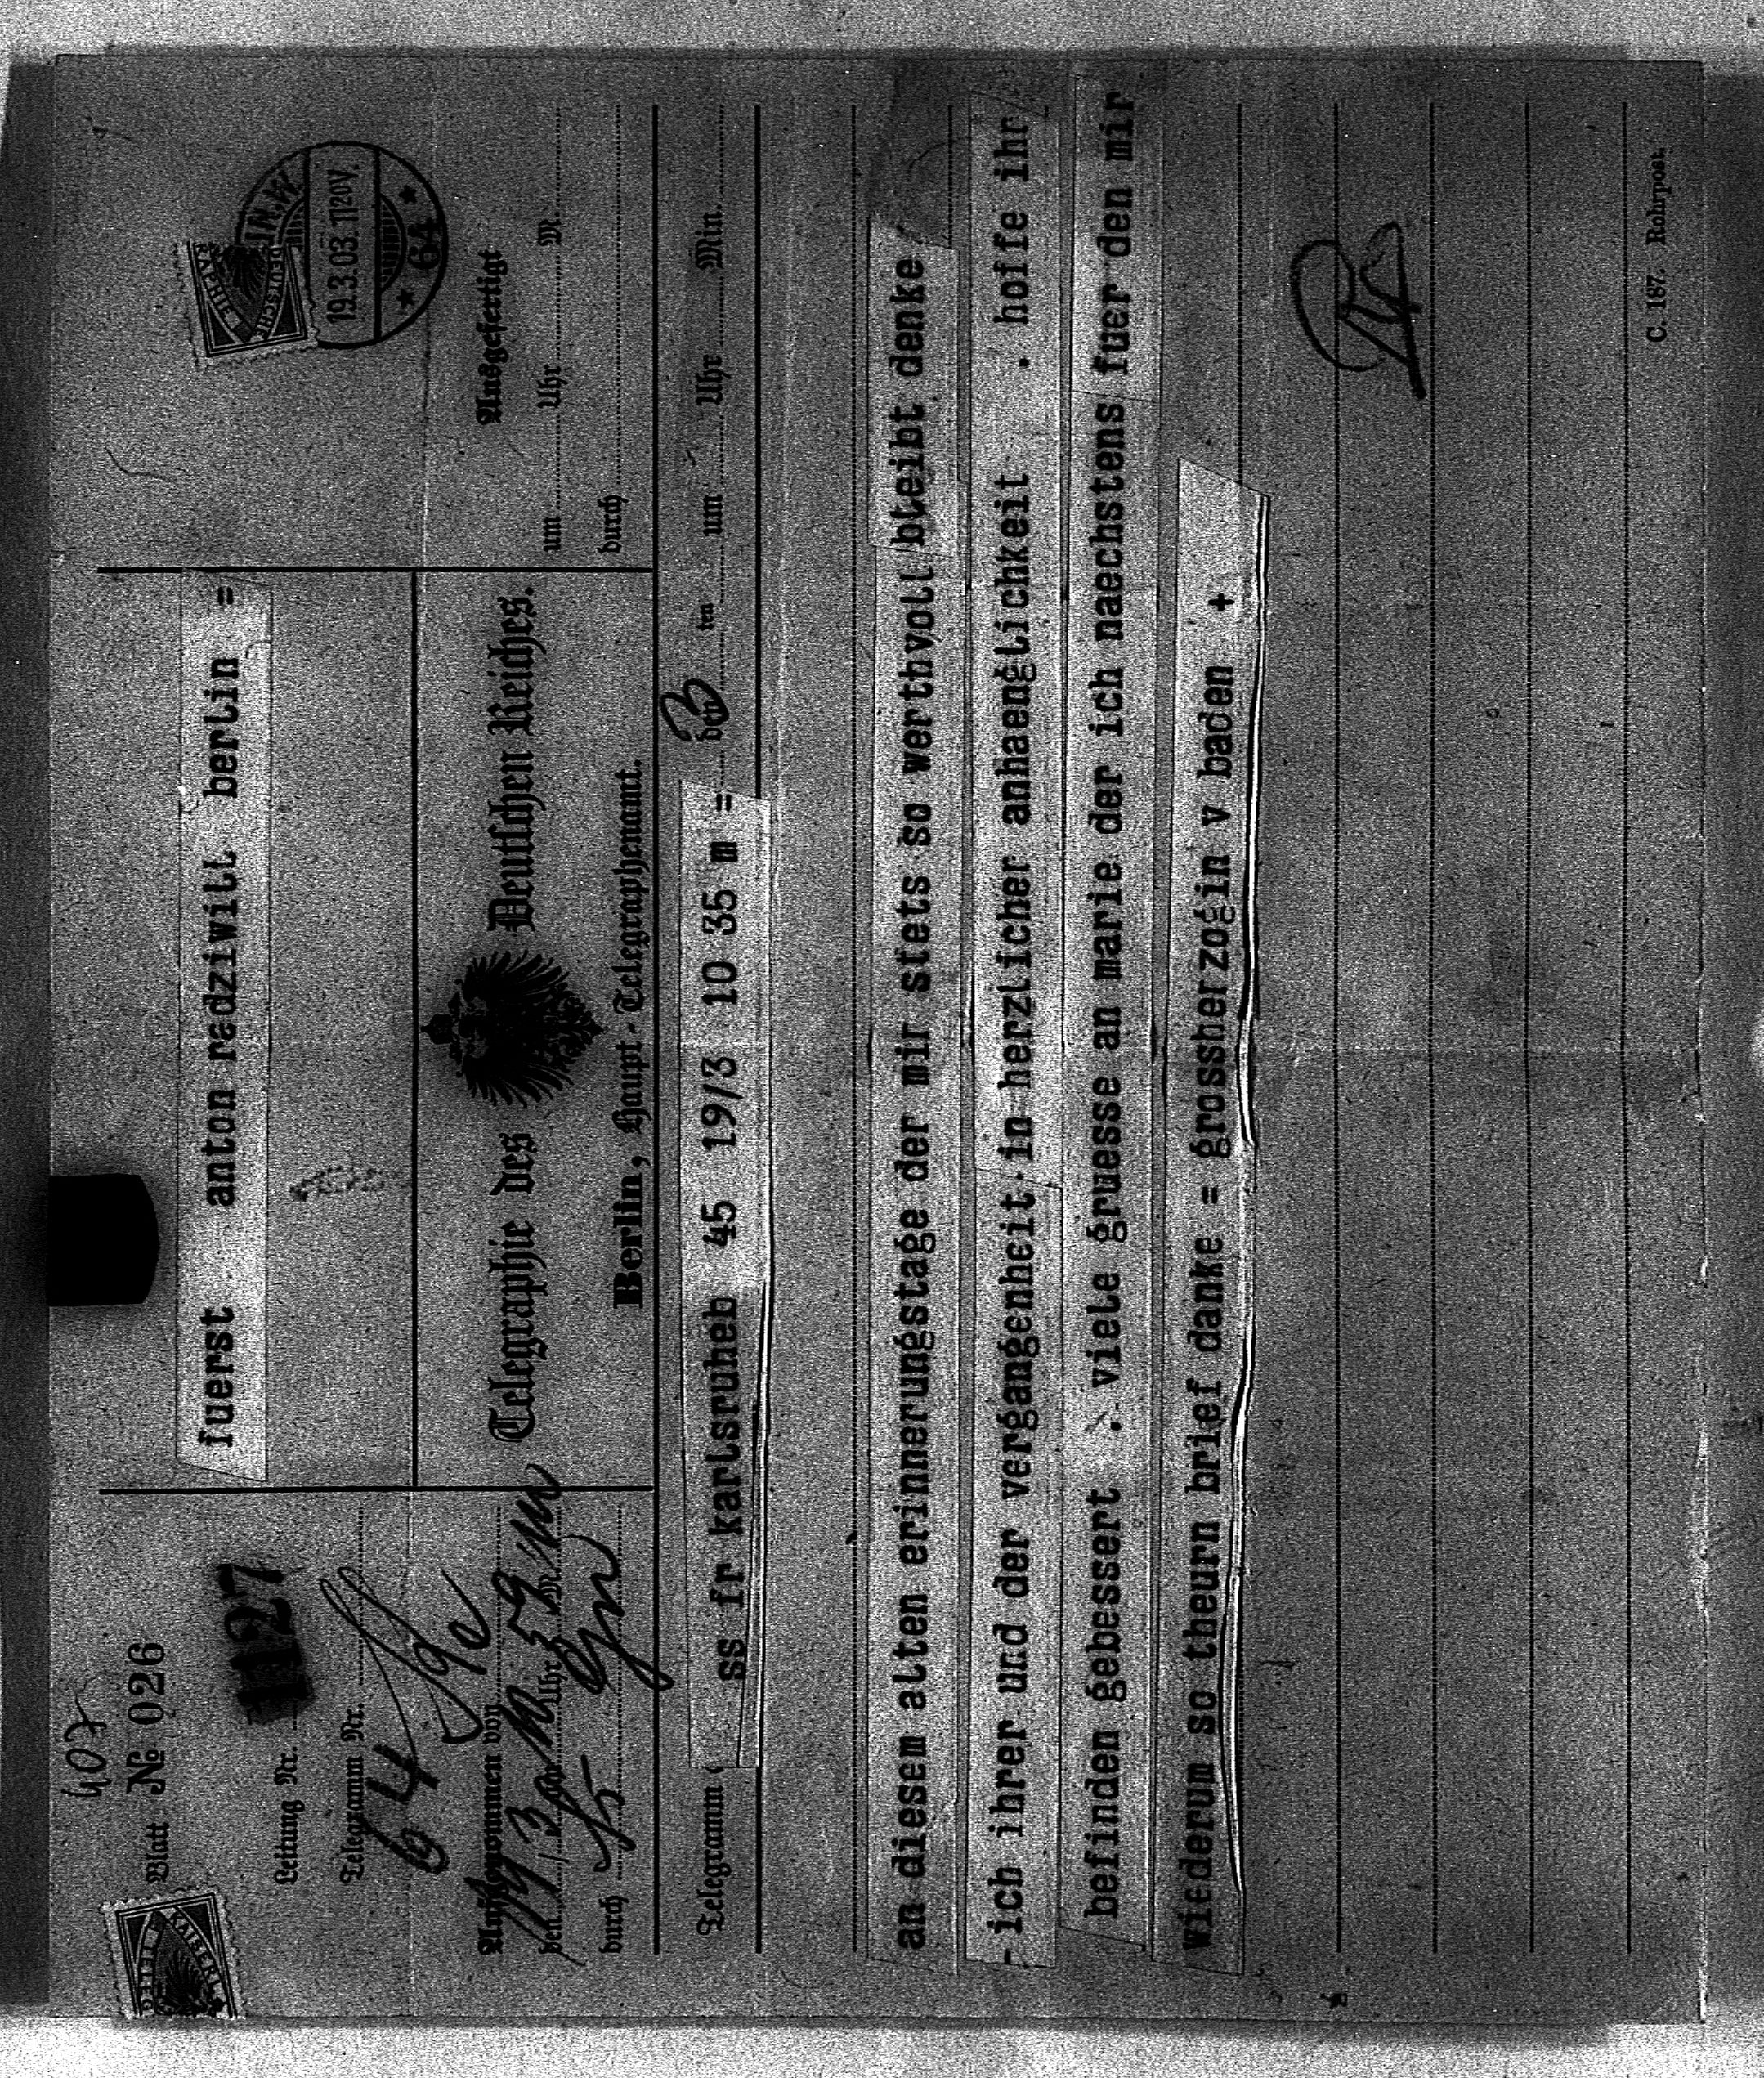 407
Blatt № 026
Leitung Nr. 1127
Telegramm Nr.
64
Aufgenommen von
den 19/3 um 10 Uhr 59 M.
durch
fuerst anton redziwill berlin =
Telegraphie des Deutschen Reiches.
Berlin, Haupt-Telegraphenamt.
IN.W.
19.3.03.1120V.
* 64 *
Ausgefertigt
um Uhr M.
durch
Telegramm ss fr karlsruheb 45 19/3 10 35 m = den ten um Uhr Min.
an diesem alten erinnerungstage der mir stets so werthvoll bleibt denke
ich ihrer und der vergangenheit in herzlicher anhaenglichkeit . hoffe ihr
befinden gebessert . viele gruesse an marie der ich naechstens fuer den mir
wiederum so theurn brief danke = grossherzogin v baden +
C. 187. Rohrpost.